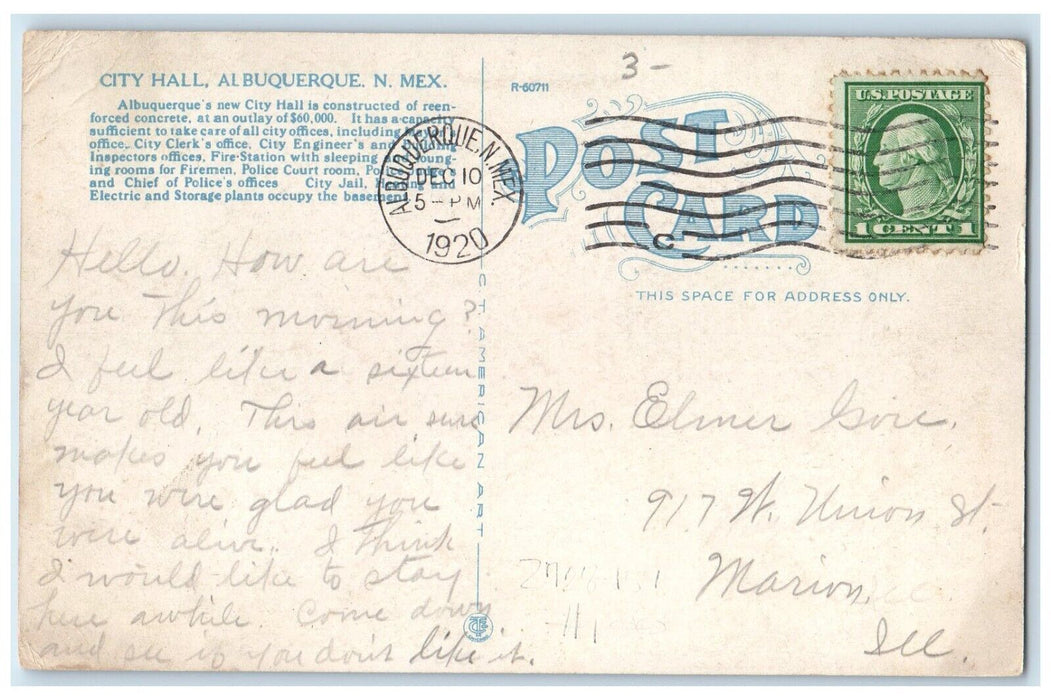 CITY HALL, ALBUQUERQUE. N. MEX.
Albuquerque's new City Hall is constructed of reen-
forced concrete, at an outlay of $60,000. It has a capacity
sufficient to take care of all city offices, including
office, City Clerk's office, City Engineer's and
Inspectors offices, Fire-Station with sleeping loung-
ing rooms for Firemen, Police Court room,
and Chief of Police's offices City Jail, and
Electric and Storage plants occupy the basement.
R-60711
3-
POST
CARD
ALBUQUERQUE, N. MEX
DEC 10
5 - PM
1920
C
U.S. POSTAGE
1 CENT 1
THIS SPACE FOR ADDRESS ONLY.
C. T. AMERICAN ART
Hello. How are
you this morning?
I feel like a sixteen
year old. This air sure
makes you feel like
you were glad you
were alive. I think
I would like to stay
here awhile. Come down
and see if you don't like it.
Mrs. Elmer Gore.
917 W. Union St.
Marion,
Ill.